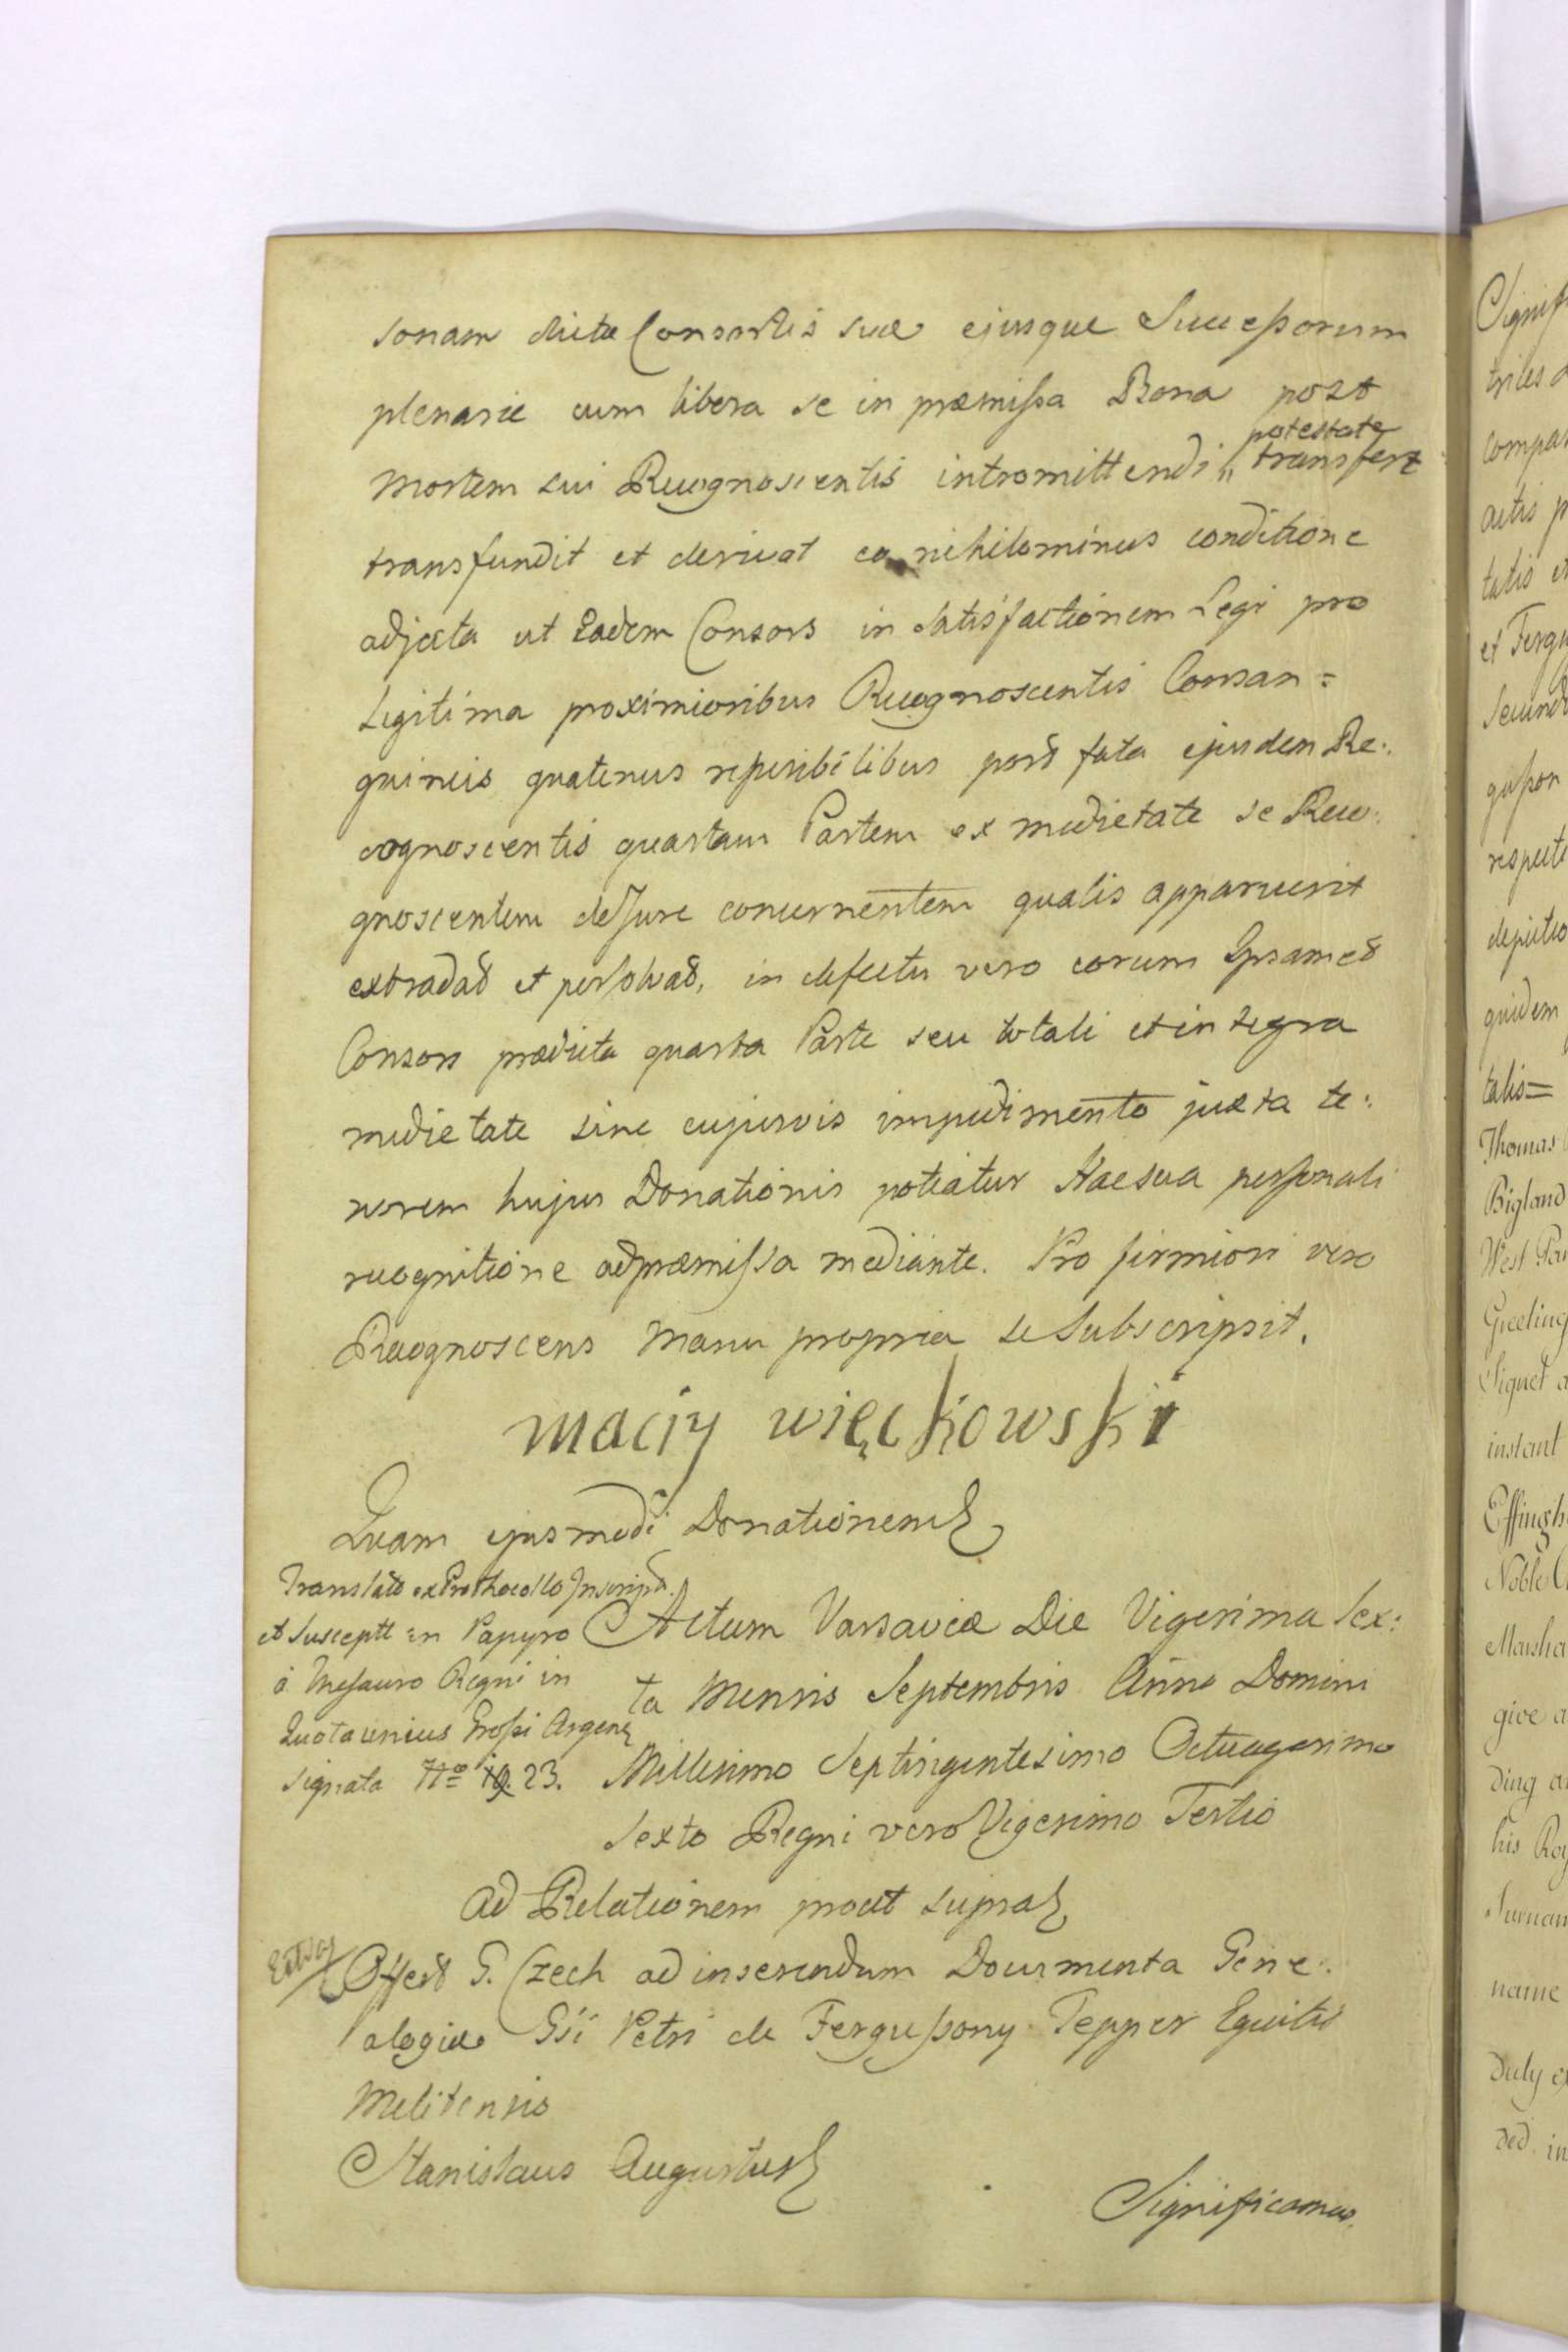 sonam dictæ Consortis suæ ejusque Successorum
plenarie cum libera se in præmissa Bona post
mortem sui Recognoscentis intromittendi " potestate transfert
transfundit et derivat ea nihilominus conditione
adjecta ut Eadem Consors in satisfactionem Legi pro
Legitima proximioribus Recognoscentis Consan=
guineis quatenus reperibilibus post fata ejusdem Re:
cognoscentis quartam Partem ex medietate se Reco:
gnoscentem de Jure concernentem qualis apparuerit
extradat et persolvat, in defectu vero eorum Ipsamet
Consors prædicta quarta Parte seu totali et integra
medietate sine cujusvis impedimento juxta te:
norem hujus Donationis potiatur Hac sua personali
recognitione ad præmissa mediante. Pro firmiori vero
Recognoscens Manu propria se subscripsit.
maciy więckowski
Quam ejusmodi Donationem
Translat ex Prothocollo Inscript.
et Susceptt in Papyro
à Thesauro Regni in
Quota unius Grossi Argen
signata N<sup>ro</sup> 23.
Actum Varsaviæ Die Vigesima Sex:
ta Mensis Septembris Anno Domini
Millesimo Septingentesimo Octuagesimo
Sexto Regni vero Vigesimo Tertio
Ad Relationem prout supra
Offert G. Czech ad inserendum Documenta Gene:
alogiæ Gsi Petri de Fergussony Tepper Equitis
Melitensis
Stanislaus Augustus
Significamus
talis=
Thomas
Bigland
Greeting
Signet
instant
Noble
give a
ding
his
name
Duly
ded in